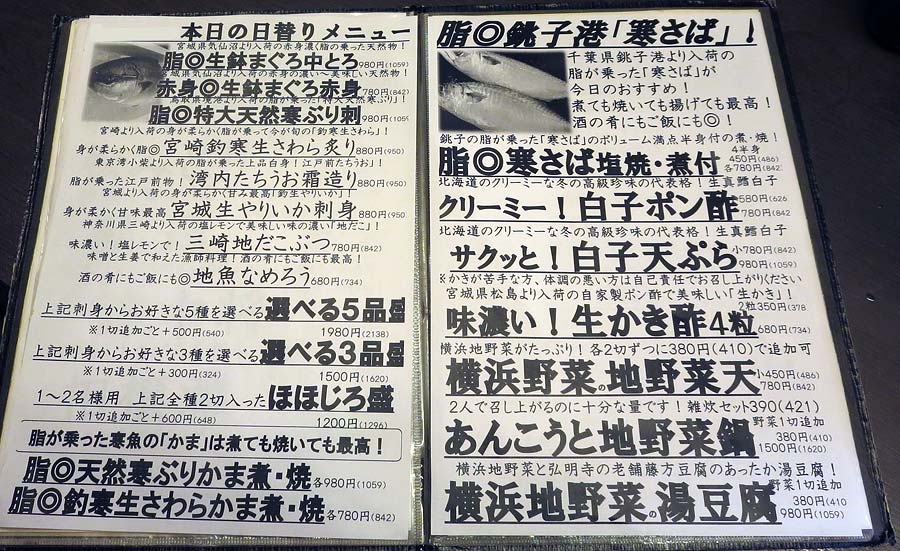 本日の日替りメニュー
宮城県気仙沼より入荷の赤身濃く脂の乗った天然物！
脂◎生鉢まぐろ中とろ980円(1059)
宮城県気仙沼より入荷の赤身の濃い〜美味しい天然物！
赤身◎生鉢まぐろ赤身780円(842)
鳥取県境港より入荷の脂が乗った「特大天然寒ぶり」！
脂◎特大天然寒ぶり刺980円(1059
宮崎より入荷の身が柔らかく脂が乗って今が旬の「釣寒生さわら」！
身が柔らかく脂◎宮崎釣寒生さわら炙り880円(950)
東京湾小柴より入荷の脂が乗った上品白身！江戸前たちうお」！
脂が乗った江戸前物！湾内たちうお霜造り880円(950)
宮城より入荷の身が柔らかく甘み最高「釣生やりいか」！
身が柔らか甘味最高宮城生やりいか刺身880円(950
神奈川県三崎より入荷の塩レモンで美味しい味の濃い「地だこ」！
味濃い！塩レモンで！三崎地だこぶつ780円(842)
味噌と生姜で和えた漁師料理！酒の肴にもご飯にも最高！
酒の肴にもご飯にも◎地魚なめろう680円(734)
上記刺身からお好きな5種を選べる選べる5品盛
※1切追加ごと+500円(540) 1980円(2138)
上記刺身からお好きな3種を選べる選べる3品盛
※1切追加ごと+300円(324) 1500円(1620)
1〜2名様用 上記全種2切入ったほほじろ盛
※1切追加ごと+600円(648) 1200円(1296)
脂が乗った寒魚の「かま」は煮ても焼いても最高！
脂◎天然寒ぶりかま煮・焼各980円(1059)
脂◎釣寒生さわらかま煮・焼各780円(842)
脂◎銚子港「寒さば」！
千葉県銚子港より入荷の
脂が乗った「寒さば」が
今日のおすすめ！
煮ても焼いても揚げても最高！
酒の肴にもご飯にも◎！
銚子の脂が乗った「寒さば」のボリューム満点半身付の煮・焼！
脂◎寒さば塩焼・煮付
4半身
450円(486)
各780円(842)
北海道のクリーミーな冬の高級珍味の代表格！生真鱈白子
クリーミー！白子ポン酢
580円(626
780円(842
北海道のクリーミーな冬の高級珍味の代表格！生真鱈白子
サクッと！白子天ぷら
小780円(842)
980円(1059)
※かきが苦手な方、体調の悪い方は自己責任でお召し上がりください
宮城県松島より入荷の自家製ポン酢で美味しい「生かき」！
2粒350円(378
味濃い！生かき酢4粒680円(734)
横浜地野菜がたっぷり！各2切ずつに380円(410)で追加可
横浜野菜の地野菜天
小450円(486)
780円(842)
2人で召し上がるのに十分な量です！雑炊セット390(421)
あんこうと地野菜鍋
野菜1切追加
380円(410)
1500円(1620)
横浜地野菜と弘明寺の老舗藤方豆腐のあったか湯豆腐！
横浜地野菜の湯豆腐
野菜1切追加
380円(410
980円(1059)